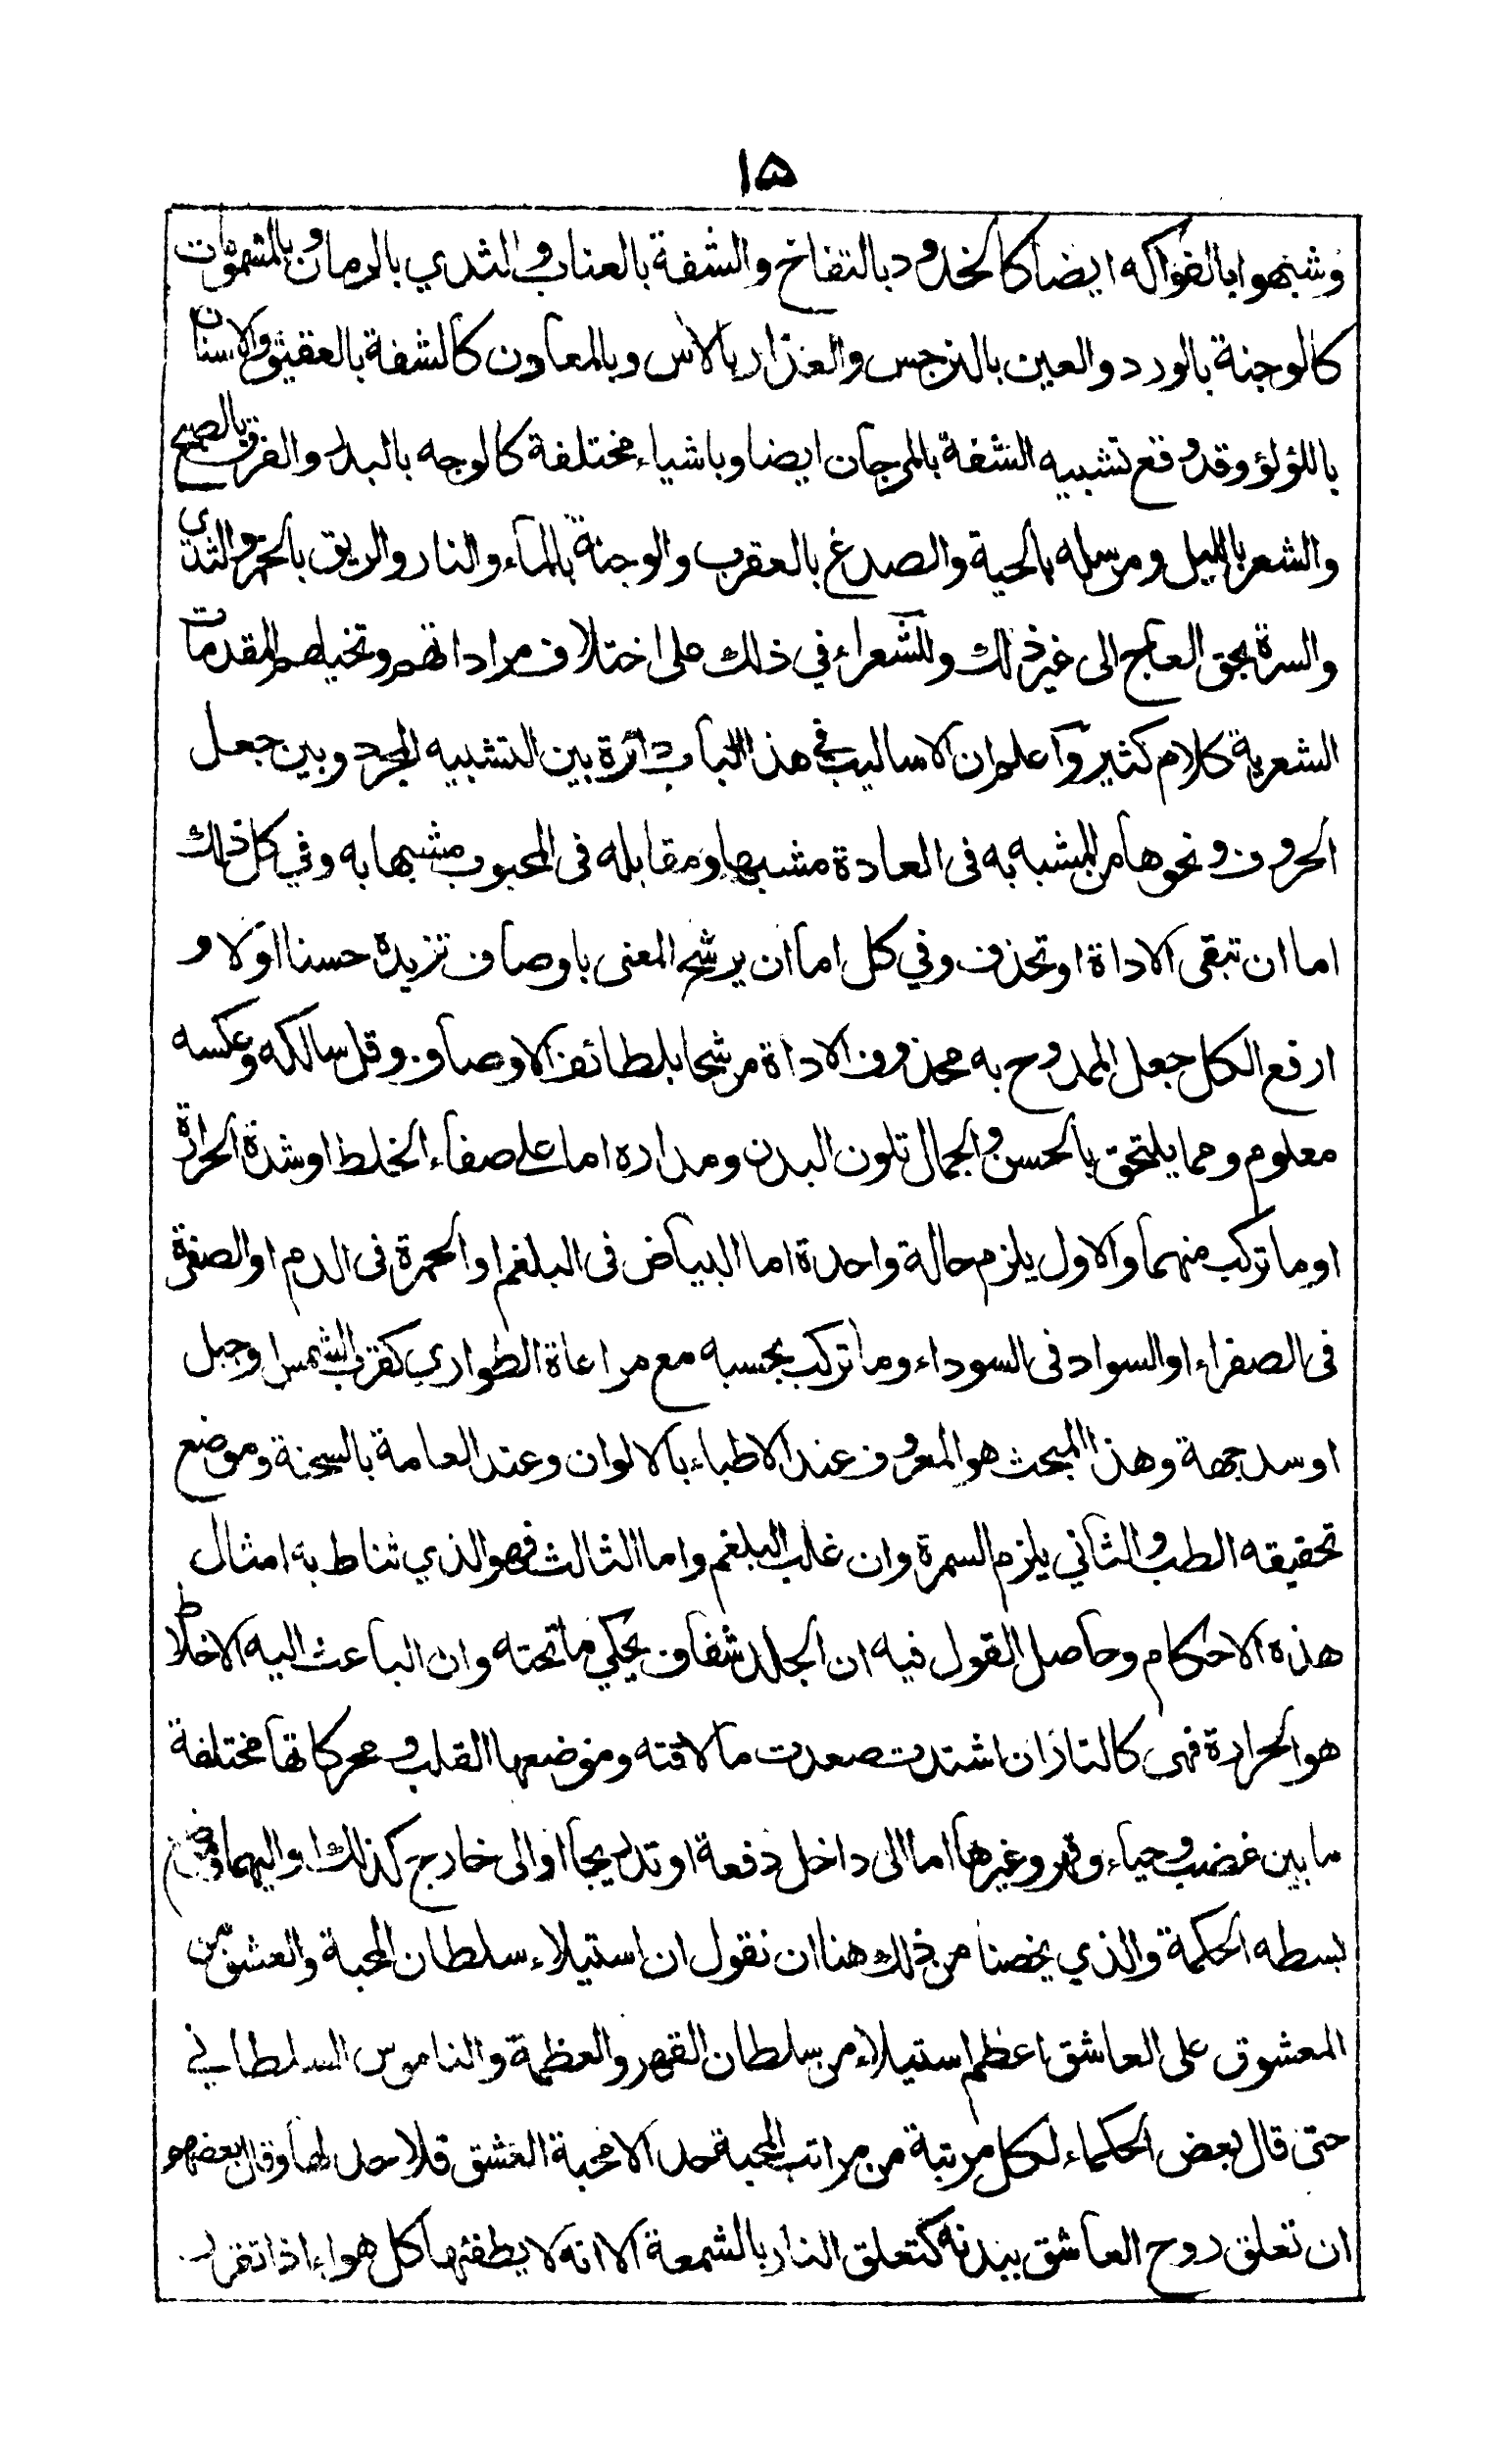 ١٥
وشبهوا بالفواكه ايضا كالخدود بالتفاخ والشفة بالعناب والثدي بالرمان وبالمشمومات
كالوجنة بالورد والعين بالنرجس والعذار بالاس وبالمعادن كالشفة بالعقيق والاسنان
باللؤلؤ وقد وقع تشبيه الشفة بالمرجان ايضا وباشياء مختلفة كالوجه بالبدر والفرق بالصبح
والشعر بالليل ومرسله بالحية والصدغ بالعقرب والوجنة بالماء والنار والريق بالخمر والثدى
والسرة بحق العاج الى غير ذلك وللشعراء في ذلك على اختلاف مراداتهم وتخيلهم المقدمات
الشعرية كلام كثير واعلم ان الاساليب في هذا الباب دائرة بين التشبيه المجرد وبين جعل
الحروف ونحوها من المشبه به فى العادة مشبها ومقابله فى المحبوب مشبها به وفي كل ذلك
اما ان تبقى الاداة او تحذف وفي كل اما ان يرشح المعنى باوصاف تزيده حسنا اولا و
ارفع الكل جعل الممدوح به محذوف الاداة مرشحا بلطائف الاوصاف وقل سالكه وعكسه
معلوم ومما يلتحق بالحسن والجمال تلون البدن ومداره اما على صفاء الخلط او شدة الحرارة
او ما تركب منهما والاول يلزم حالة واحدة اما البياض فى البلغم او الحمرة فى الدم او الصفرة
فى الصفراء او السواد فى السوداء وما تركب بحسبه مع مراعاة الطواري كقرب الشمس او جبل
او سد جهة وهذا المبحث هو المعروف عند الاطباء بالالوان وعند العامة بالسحنة وموضع
تحقيقه الطب والثاني يلزم السمرة وان غلب البلغم واما الثالث فهو الذي تناط به امثال
هذه الاحكام وحاصل القول فيه ان الجلد شفاف يحكي ما تحته وان الباعث اليه الاخلاط
هو الحرارة فهى كالنار ان اشتدت صعدت ما لاقته وموضعها القلب ومحركاتها مختلفة
ما بين غضب وحياء وقهر وغيرها اما الى داخل دفعة او تدريجا او الى خارج كذلك او اليهما وموضع
بسطه الحكمة والذي يخصنا من ذلك هنا ان نقول ان استيلاء سلطان المحبة والعشق من
المعشوق على العاشق اعظم استيلاء من سلطان القهر والعظمة والناموس السلطاني
حتى قال بعض الحكماء لكل مرتبة من مراتب المحبة حد الا محبة العشق فلا حد لها وقال بعضهم
ان تعلق روح العاشق ببدنه كتعلق النار بالشمعة الا انه لا يطفئها كل هواء اذا تقرر